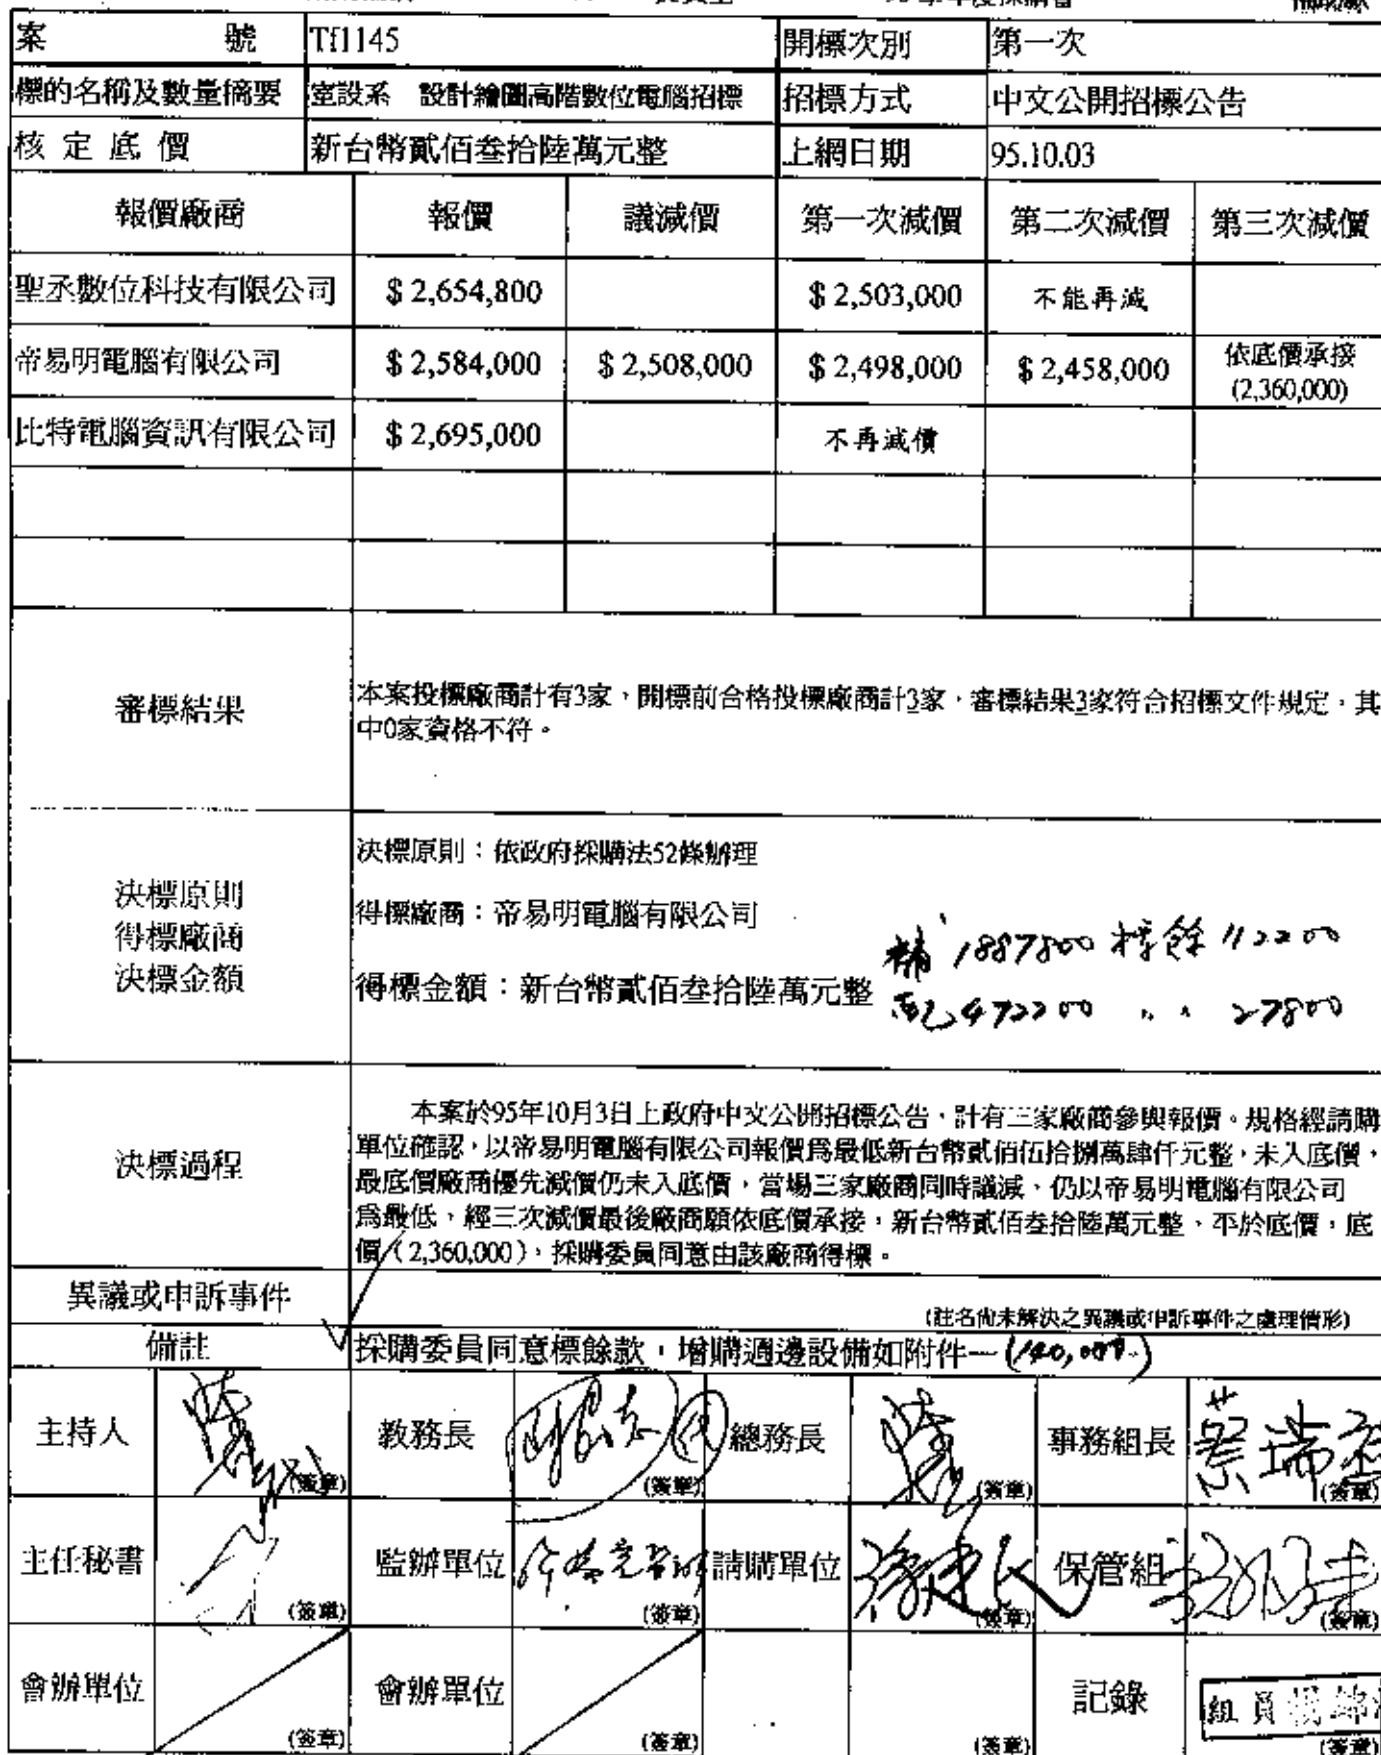 案 號 Tf1145 開標次別 第一次
標的名稱及數量摘要 室設系 設計繪圖高階數位電腦招標 招標方式 中文公開招標公告
核定底價 新台幣貳佰叁拾陸萬元整 上網日期 95.10.03
報價廠商 報價 議減價 第一次減價 第二次減價 第三次減價
聖丞數位科技有限公司 $2,654,800 $2,503,000 不能再減
帝易明電腦有限公司 $2,584,000 $2,508,000 $2,498,000 $2,458,000 依底價承接
(2,360,000)
比特電腦資訊有限公司 $2,695,000 不再減價
審標結果
本案投標廠商計有3家，開標前合格投標廠商計3家，審標結果3家符合招標文件規定，其
中0家資格不符。
決標原則
得標廠商
決標金額
決標原則：依政府採購法52條辦理
得標廠商：帝易明電腦有限公司
得標金額：新台幣貳佰叁拾陸萬元整
補 1887800 標餘 112200
配 472200 〃 〃 27800
決標過程
本案於95年10月3日上政府中文公開招標公告，計有三家廠商參與報價。規格經請購
單位確認，以帝易明電腦有限公司報價為最低新台幣貳佰伍拾捌萬肆仟元整，未入底價，
最底價廠商優先減價仍未入底價，當場三家廠商同時議減、仍以帝易明電腦有限公司
為最低，經三次減價最後廠商願依底價承接，新台幣貳佰叁拾陸萬元整、平於底價，底
價（2,360,000），採購委員同意由該廠商得標。
異議或申訴事件
(註名尚未解決之異議或申訴事件之處理情形)
備註 採購委員同意標餘款，增購週邊設備如附件一 (140,000-)
主持人 (簽章) 教務長 (簽章) 總務長 (簽章) 事務組長 蔡瑞 (簽章)
主任秘書 (簽章) 監辦單位 (簽章) 請購單位 (簽章) 保管組 (簽章)
會辦單位 (簽章) 會辦單位 (簽章) (簽章) 記錄 組員 (簽章)